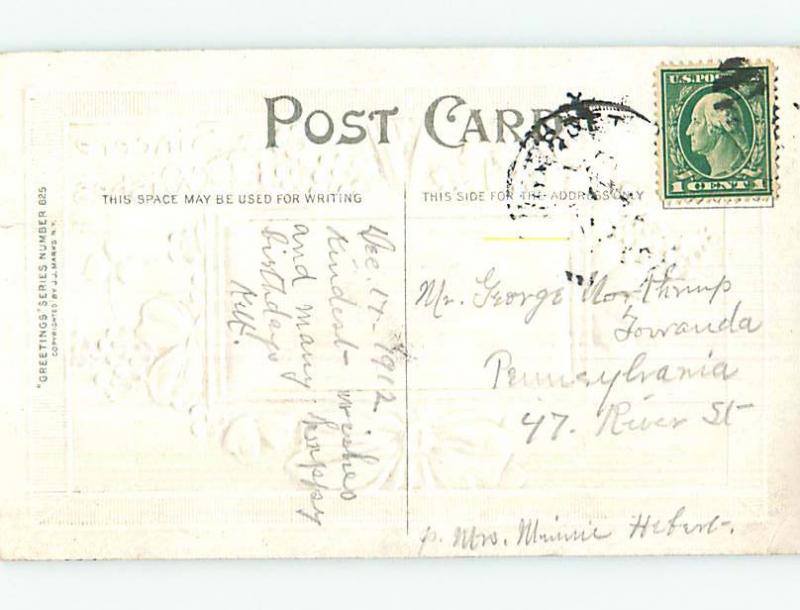 POST CARD
THIS SPACE MAY BE USED FOR WRITING
THIS SIDE FOR THE ADDRESS ONLY
U.S. POSTAGE
1 CENT 1
"GREETINGS" SERIES NUMBER 825
COPYRIGHTED BY J.J. MARKS N.Y.
Dec. 17- 1912
Kindest- wishes
and many happy
birthdays
Mr. George Northrup
Towanda
Pennsylvania
47. River St
p. Mrs. Minnie Hebert-.